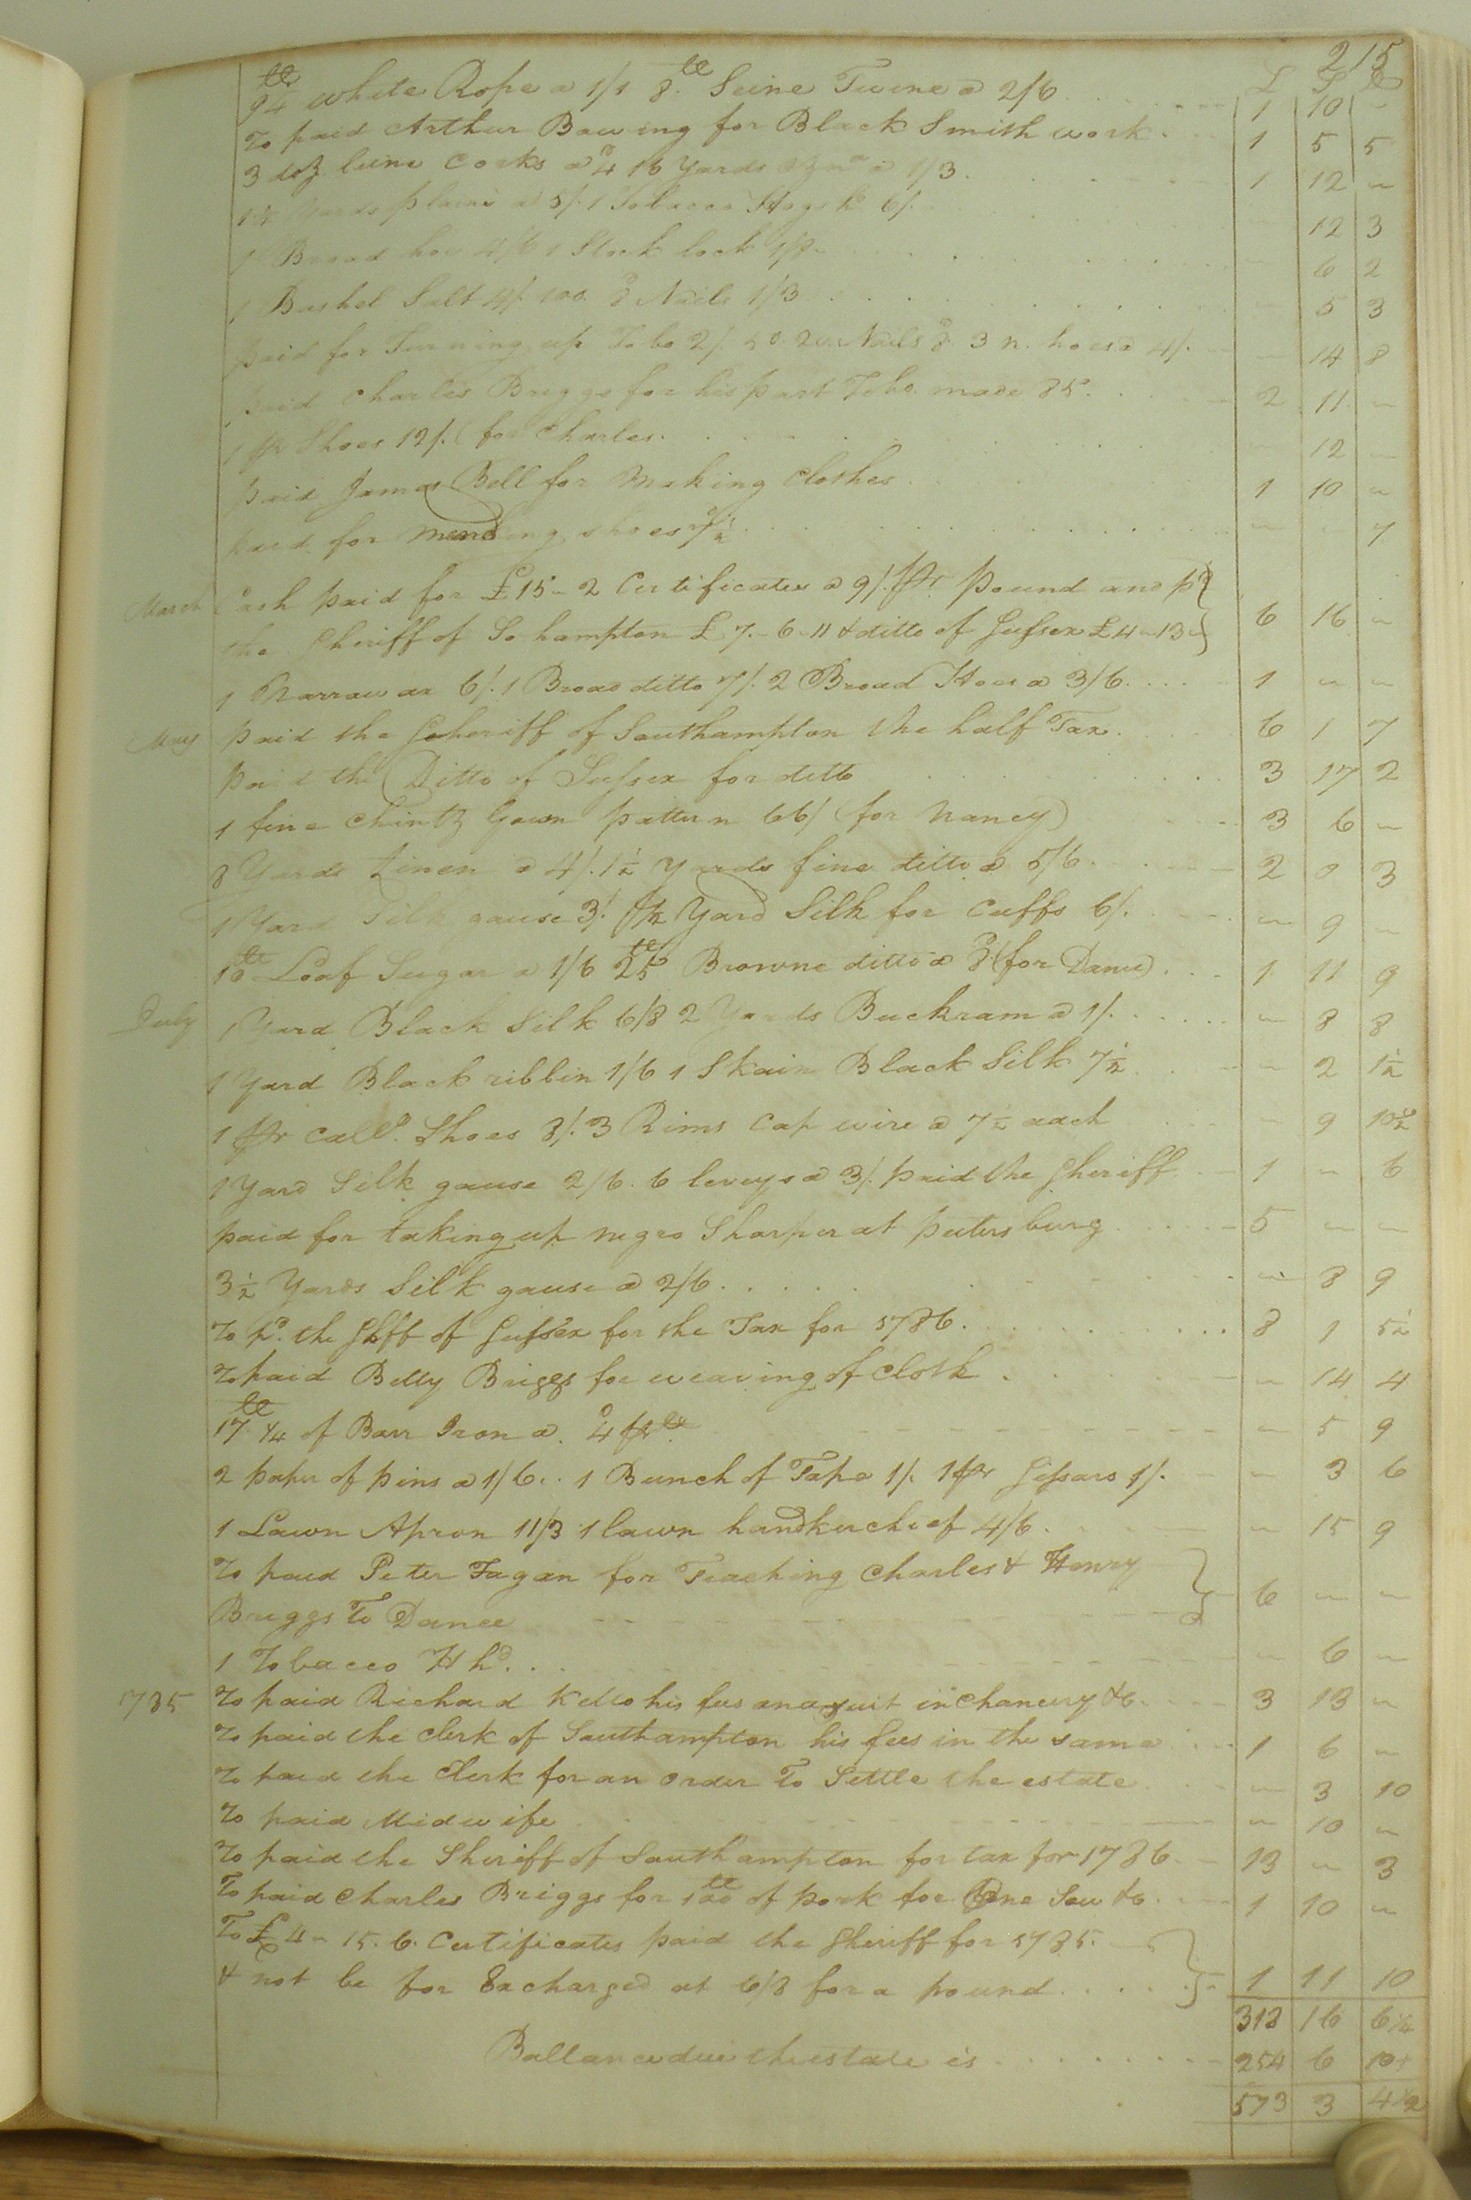 215
£ S D
9¼ lb white Rope a 1/1 8 lb Seine Twine a 2/6 1 10 -
To paid Arthur Bowing for Black Smith work 1 5 5
3 doz. corks a 4d 16 Yards a 1/3 1 12 -
Yards plains a 5/. 1 Tobacco Hogshd. 6/. 12 3
1 Broad hoe 4/6 1 Stock lock 1/8 6 2
1 Bushel Salt 4/. 100. 8d Nails 1/3 5 3
paid for Turning up Tobo 2/. 50. 20d. Nails 8d. 3 n. hoes a 4/. - 14 8
paid Charles Briggs for his part Tobo. made 85. 2 11 -
1 pr Shoes 12/. (for Charles. 12 -
paid James Bell for Making Clothes 1 10 -
paid for mending shoes 7½d - - 7
March Cash paid for £15-2 Certificates a 9/. pr pound and pd
the Sheriff of So hampton £7.-6-11 & ditto of Sussex £4-13- 6 16 -
1 Narrow ax 6/. 1 Broad ditto 7/. 2 Broad Hoes a 3/6. 1 - -
May paid the Sheriff of Southampton the half Tax 6 1 7
paid the Ditto of Sussex for ditto 3 17 2
1 fine Chintz Gown pattern 66/ (for Nancy) 3 6 -
8 Yards Linen a 4/. 1½ Yards fine ditto a 5/6. 2 0 3
1 Yard Silk gause 3/. ½ Yard Silk for Cuffs 6/. - 9 -
10 lb Loaf Sugar a 1/6 25 lb Browne ditto a 8d (for Dance) 1 11 9
July 1 Yard Black Silk 6/8 2 Yards Buckram a 1/. - 8 8
1 Yard Black ribbin 1/6 1 Skain Black Silk 7½ - 2 1½
1 pr Callo. Shoes 8/. 3 Rims Cap wire a 7½ each - 9 10½
1 Yard Silk gause 2/6. 6 leveys a 3/. paid the Sheriff 1 - 6
paid for taking up negro Sharper at petersburg 5 - -
3½ Yards Silk gause a 2/6. - 8 9
To pd. the Shff of Sussex for the Tax for 1786. 8 1 5½
To paid Betty Briggs for weaving of cloth - 14 4
17 lb ¼ of Barr Iron a. 4d pr lb. - 5 9
2 paper of pins a 1/6. . 1 Bunch of Tape 1/. 1 pr Sissars 1/. - 3 6
1 Lawn Apron 11/3 1 lawn handkerchief 4/6. - 15 9
To paid Peter Fagan for Teaching Charles & Henry
Briggs To Dance 6 - -
1 Tobacco Hhd. - 6 -
785 To paid Richard Kello his fees and suit in Chancery &c. 3 13 -
To paid the Clerk of Southampton his fees in the same 1 6 -
To paid the Clerk for an order To Settle the estate - 3 10
To paid Midwife - 10 -
To paid the Sheriff of Southampton for tax for 1786 13 - 3
To paid Charles Briggs for 100 lb of pork for One Sow &c. 1 10 -
To £4-15.6. Certificates paid the Sheriff for 1785.
& not be for Excharged at 6/8 for a pound 1 11 10
318 16 6¼
Ballance due the estate is 254 6 10+
573 3 4½